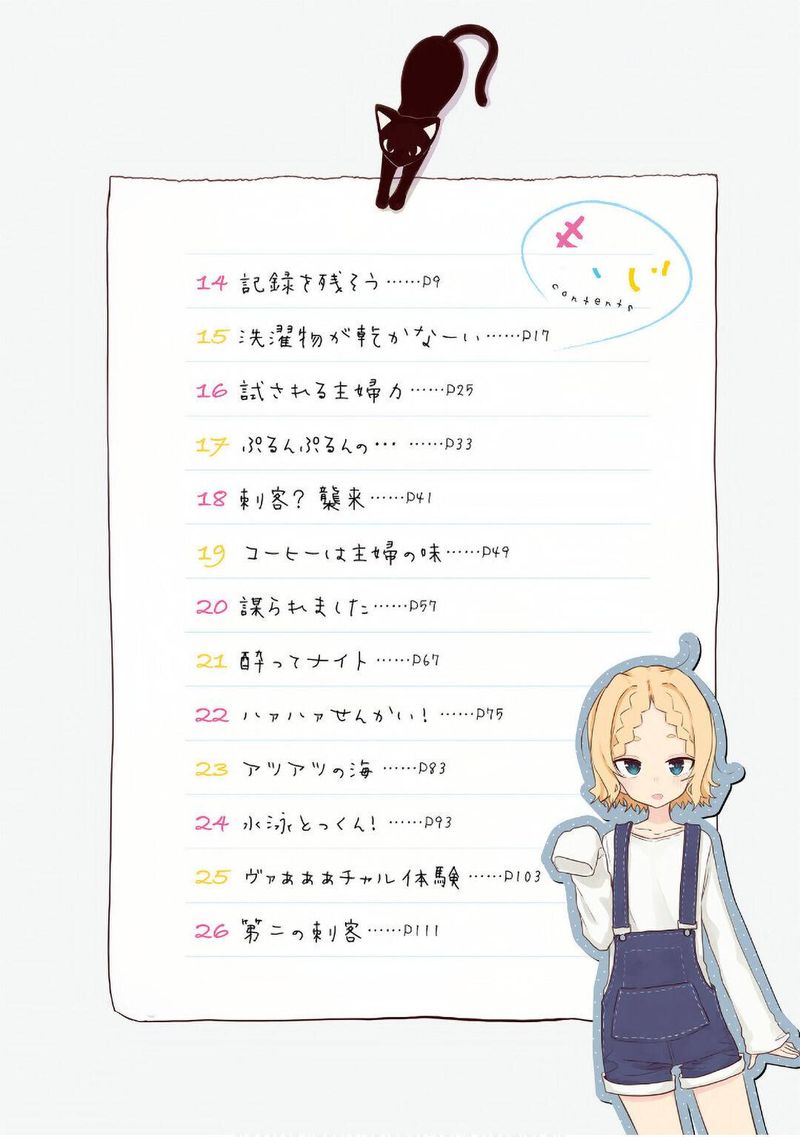 もくじ
contents
14 記録を残そう……P9
15 洗濯物が乾かなーい……P17
16 試される主婦力……P25
17 ぷるんぷるんの… ……P33
18 刺客? 襲来……P41
19 コーヒーは主婦の味……P49
20 謀られました……P57
21 酔ってナイト……P67
22 ハァハァせんかい! ……P75
23 アツアツの海……P83
24 水泳とっくん! ……P93
25 ヴァぁぁぁチャル体験……P103
26 第二の刺客……P111